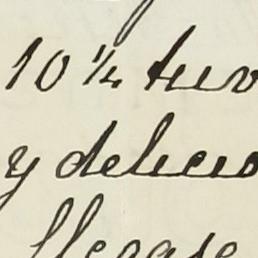 10 ¼ tuv
y delicio
llegase